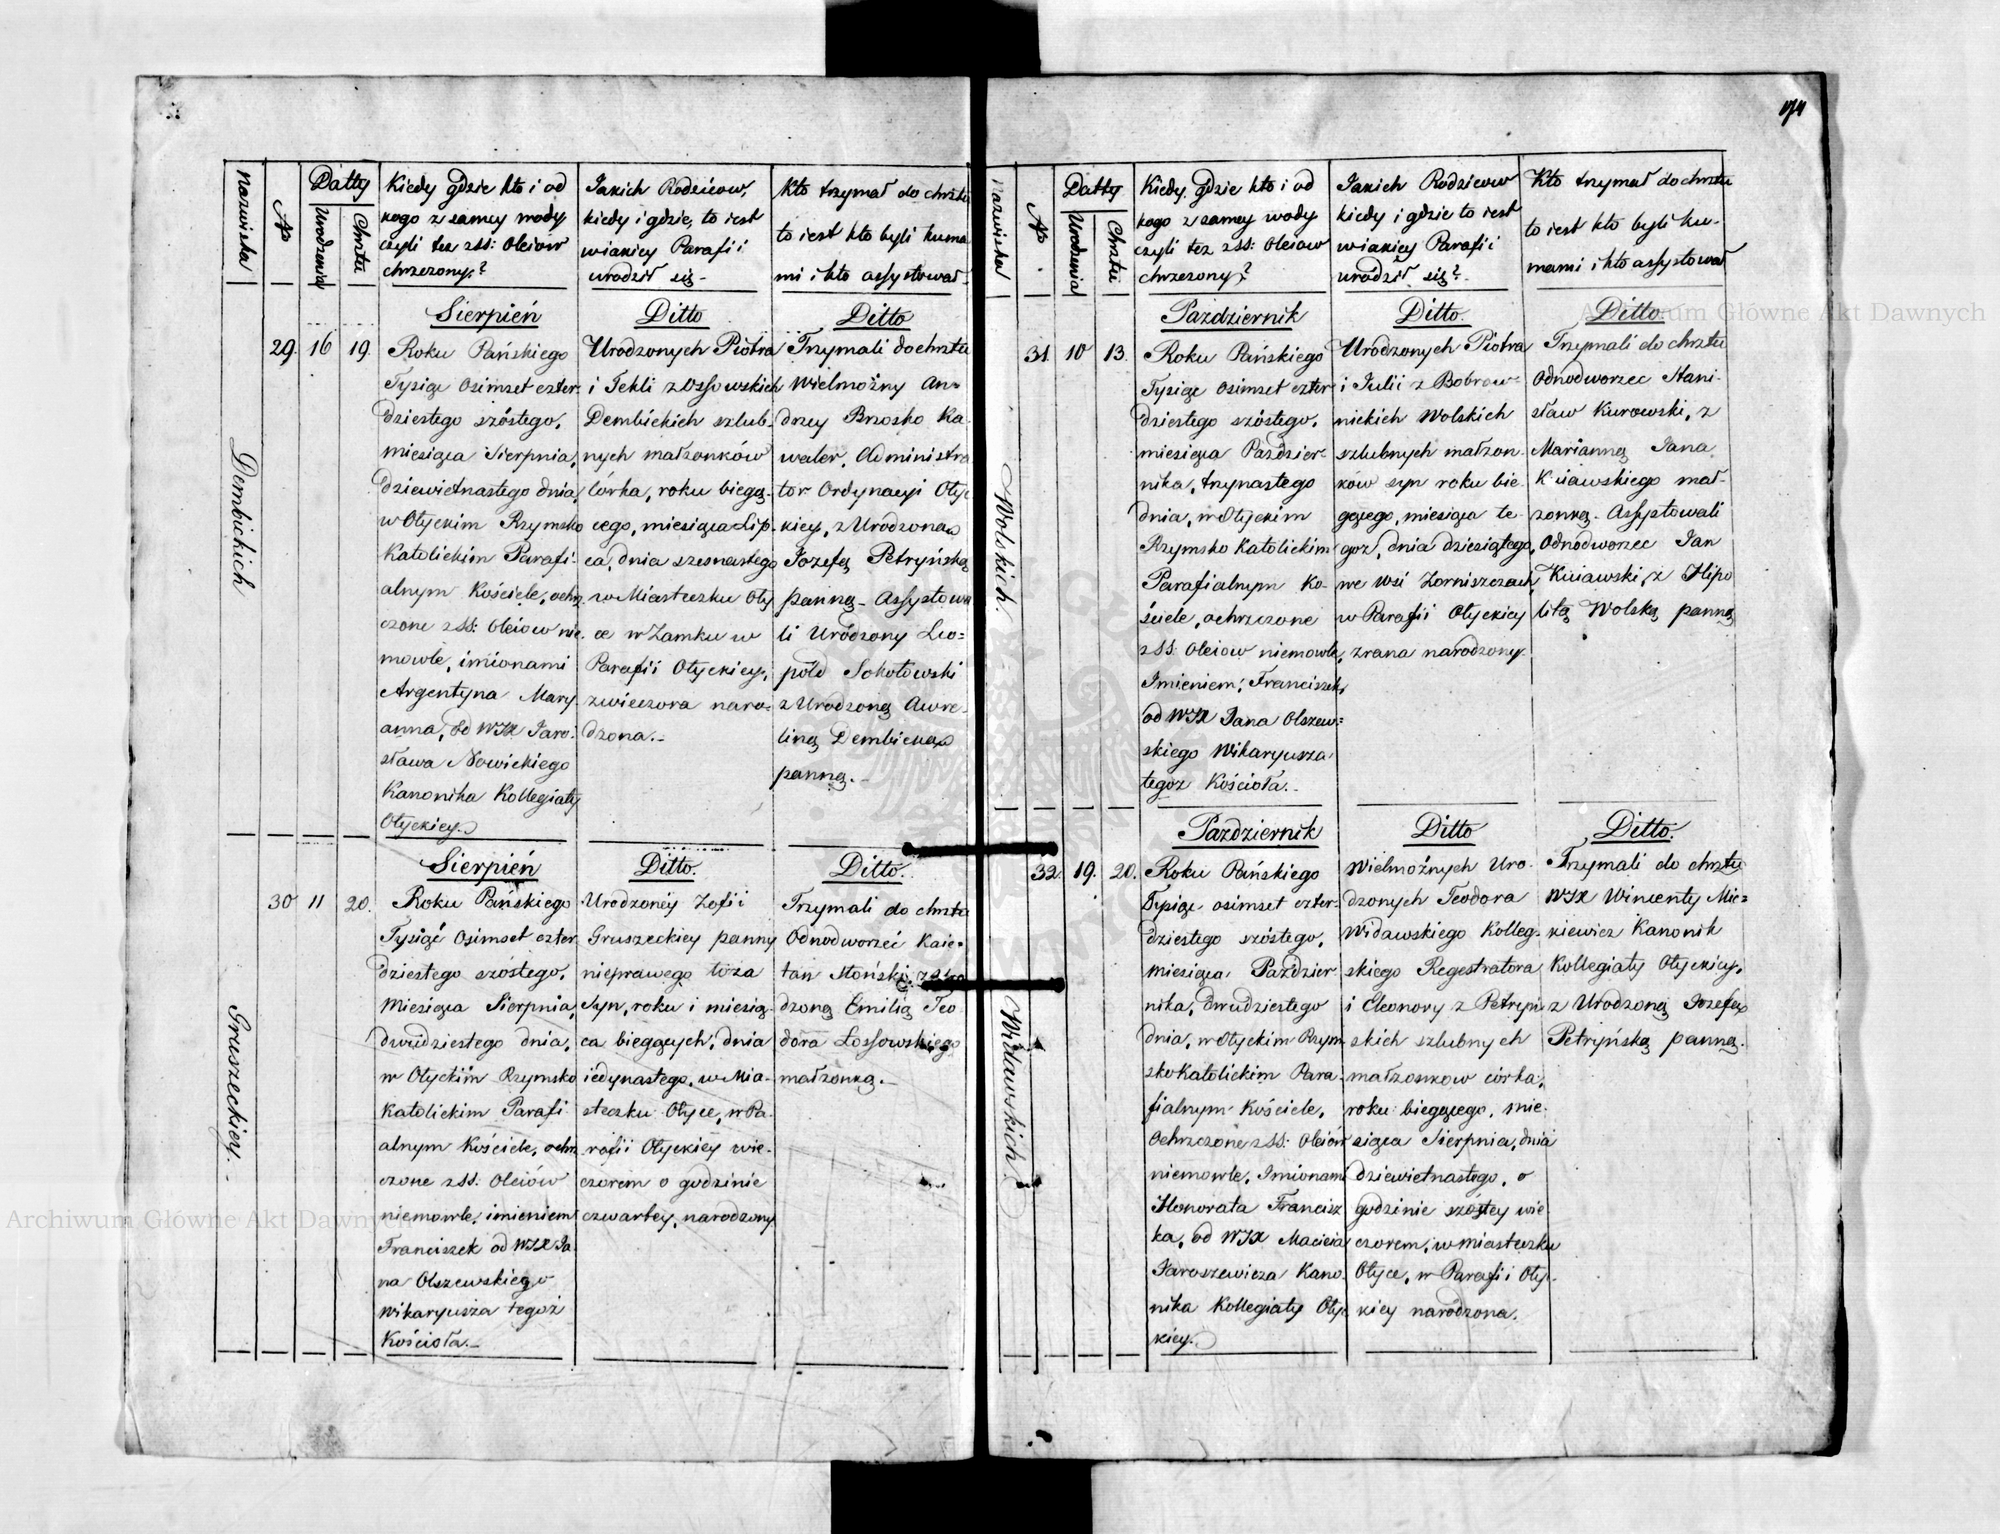 174
Nazwiska
№
Datty
Urodzenia
Chrztu
Kiedy gdzie kto i od
kogo z samey wody
czyli też z SS: Oleiów
chrzczony?
Jakich Rodziców,
kiedy i gdzie, to iest
w iakiey Parafii
urodził się -
Kto trzymał do chrztu
to iest kto byli kuma
mi i kto assystował
Dembickich
29.
16
19.
Sierpień
Roku Pańskiego
Tysiąc Osimset czter-
dziestego szóstego,
miesiąca Sierpnia,
dziewietnastego dnia,
w Ołyckim Rzymsko
Katolickim Parafi-
alnym Kościele, ochrz-
czone z SS: Oleiów nie-
mowle, imionami
Argentyna Mary-
anna, od WJX Jaro-
sława Nowickiego
Kanonika Kollegiaty
Ołyckiey.
Ditto
Urodzonych Piotra
i Tekli z Ossowskich
Dembickich szlub-
nych małżonków
córka, roku bieżą-
cego, miesiąca Lip-
ca, dnia szesnastego
w Miasteczku Oły
ce w Zamku w
Parafii Ołyckiey,
z wieczora naro-
dzona. -
Ditto
Trzymali do chrztu
Wielmożny An-
drzey Brzosko Ka-
waler, Administra
tor Ordynacyi Ołyc
kiey, z Urodzoną
Jozefą Petryńską
panną - Assystowa
li Urodzony Leo-
pold Sokołowski
z Urodzoną Awre-
liną Dembicką
panną. -
Gruszeckiey.
30
11
20.
Sierpień
Roku Pańskiego
Tysiąć Osimset czter
dziestego szóstego,
Miesiąca Sierpnia,
dwudziestego dnia,
w Ołyckim Rzymsko
Katolickim Parafi
alnym Kościele, ochrz
czone z SS: Oleiów
niemowle, imieniem
Franciszek od WJX Ja
na Olszewskiego
Wikaryusza tegoż
Kościoła. -
Ditto.
Urodzoney Zofii
Gruszeckiey panny
nieprawego łoża
Syn, roku i miesią
ca bieżących, dnia
iedynastego, w Mia-
steczku Ołyce, w Pa-
rafii Ołyckiey wie-
czorem o godzinie
czwartey, narodzony
Ditto.
Trzymali do chrztu
Odnodworzec Kaie-
tan Słoński z Uro
dzoną Emilią Teo
dora Lossowskiego
małżonką. -
Nazwiska
№
Datty
Urodzenia
Chrztu
Kiedy, gdzie kto i od
kogo z samey wody
czyli też z SS: Oleiow
chrzczony?
Jakich Rodziców
kiedy i gdzie to iest
w iakiey Parafii
urodził się?
Kto trzymał do chrztu
to iest kto byli ku-
mami i kto assystował
Wolskich.
31.
10
13.
Pazdziernik
Roku Pańskiego
Tysiąc Osimset czter-
dziestego szóstego,
miesiąca Paździer-
nika, trzynastego
dnia, w Ołyckim
Rzymsko Katolickim
Parafialnym Ko-
ściele, ochrzczone
z SS. Oleiow niemowle,
Imieniem, Franciszek,
od WJX Jana Olszew-
skiego Wikaryusza
tegoz Kościoła. -
Ditto.
Urodzonych Piotra
i Julii z Bobrow-
nickich Wolskich
szlubnych małżon-
ków syn roku bie-
żącego, miesiąca te-
goz, dnia dziesiątego,
we Wsi Zorniszczach,
w Parafii Ołyckiey
z rana narodzony.
Ditto.
Trzymali do chrztu
Odnodworzec Stani-
sław Kurowski, z
Marianną Jana,
Kuiawskiego mał-
żonką - Assystowali
Odnodworzec Jan
Kuiawski, z Hipo
litą Wolską panną
Widawskich
32.
19.
20.
Pazdziernik
Roku Pańskiego
Tysiąc osimset czter-
dziestego szóstego,
miesiąca Pazdzier
nika, dwudziestego
dnia, w Ołyckim Rzym
sko Katolickim Para-
fialnym Kościele,
Ochrzczone z SS: Oleiów
niemowle, Imionami
Honorata Francisz
ka, od WJX Macieia
Jaroszewicza Kano-
nika Kollegiaty Ołyc
kiey.
Ditto
Wielmożnych Uro-
dzonych Teodora
Widawskiego Kolleg-
skiego Regestratora,
i Eleonory z Petryń
skich szlubnych
małżonkow córka,
roku bieżącego, mie-
siąca Sierpnia, dnia
dziewietnastego, o
godzinie szóstey wie
czorem, w miasteczku
Ołyce, w Parafii Oły-
ckiey narodzona.
Ditto.
Trzymali do chrztu
WJX Wincenty Mic-
kiewicz Kanonik
Kollegiaty Ołyckiey,
z Urodzoną Jozefą
Petryńską panną.
Archiwum Główne Akt Dawnych
Archiwum Główne Akt Dawnych